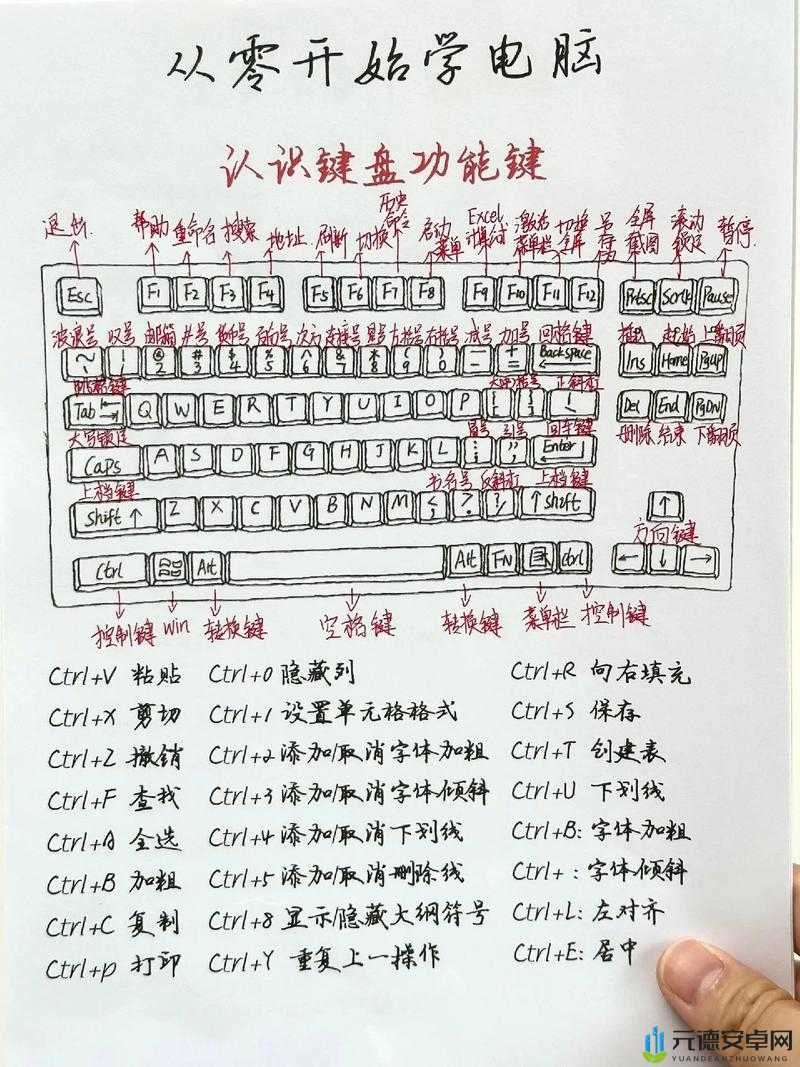 从零开始学电脑
认识键盘功能键
退出 帮助 重命名 搜索 地址 刷新 切换 历史命令 启动菜单 Excel计算公式 激活菜单栏 切换全屏 另存为 全屏截图 滚动锁定 暂停
Esc F1 F2 F3 F4 F5 F6 F7 F8 F9 F10 F11 F12 Prtsc Scrlk Pause
波浪号 叹号 邮箱 井号 货币号 百分号 次方 连接号 星号 左括号 右括号 减号 加号 回格键 插入 起始 上翻页
~ ! @ 2 # 3 $ 4 % 5 ^ 6 & 7 * 8 ( 9 ) 0 — + = Backspace Ins Home PgUp
大中括号 正斜杠
Tab Q W E R T Y U I O P Del End PgDn
大写锁定 冒号 引号 回车键 删除 结束 下翻页
Caps A S D F G H J K L Enter
上档键 书名号 反斜杠 上档键
Shift ↑ Z X C V B N M ↑ Shift ↑
方向键
Ctrl Alt Alt FN Ctrl ← ↓ →
控制键 Win 转换键 空格键 转换键 菜单栏 控制键
Ctrl+V 粘贴 Ctrl+0 隐藏列 Ctrl+R 向右填充
Ctrl+X 剪切 Ctrl+1 设置单元格格式 Ctrl+S 保存
Ctrl+Z 撤销 Ctrl+2 添加/取消字体加粗 Ctrl+T 创建表
Ctrl+F 查找 Ctrl+3 添加/取消字体倾斜 Ctrl+U 下划线
Ctrl+A 全选 Ctrl+4 添加/取消下划线 Ctrl+B: 字体加粗
Ctrl+B 加粗 Ctrl+5 添加/取消删除线 Ctrl+ : 字体倾斜
Ctrl+C 复制 Ctrl+8 显示/隐藏大纲符号 Ctrl+L: 左对齐
Ctrl+p 打印 Ctrl+Y 重复上一操作 Ctrl+E: 居中
元德安卓网
YUANDEANZHUOWANG